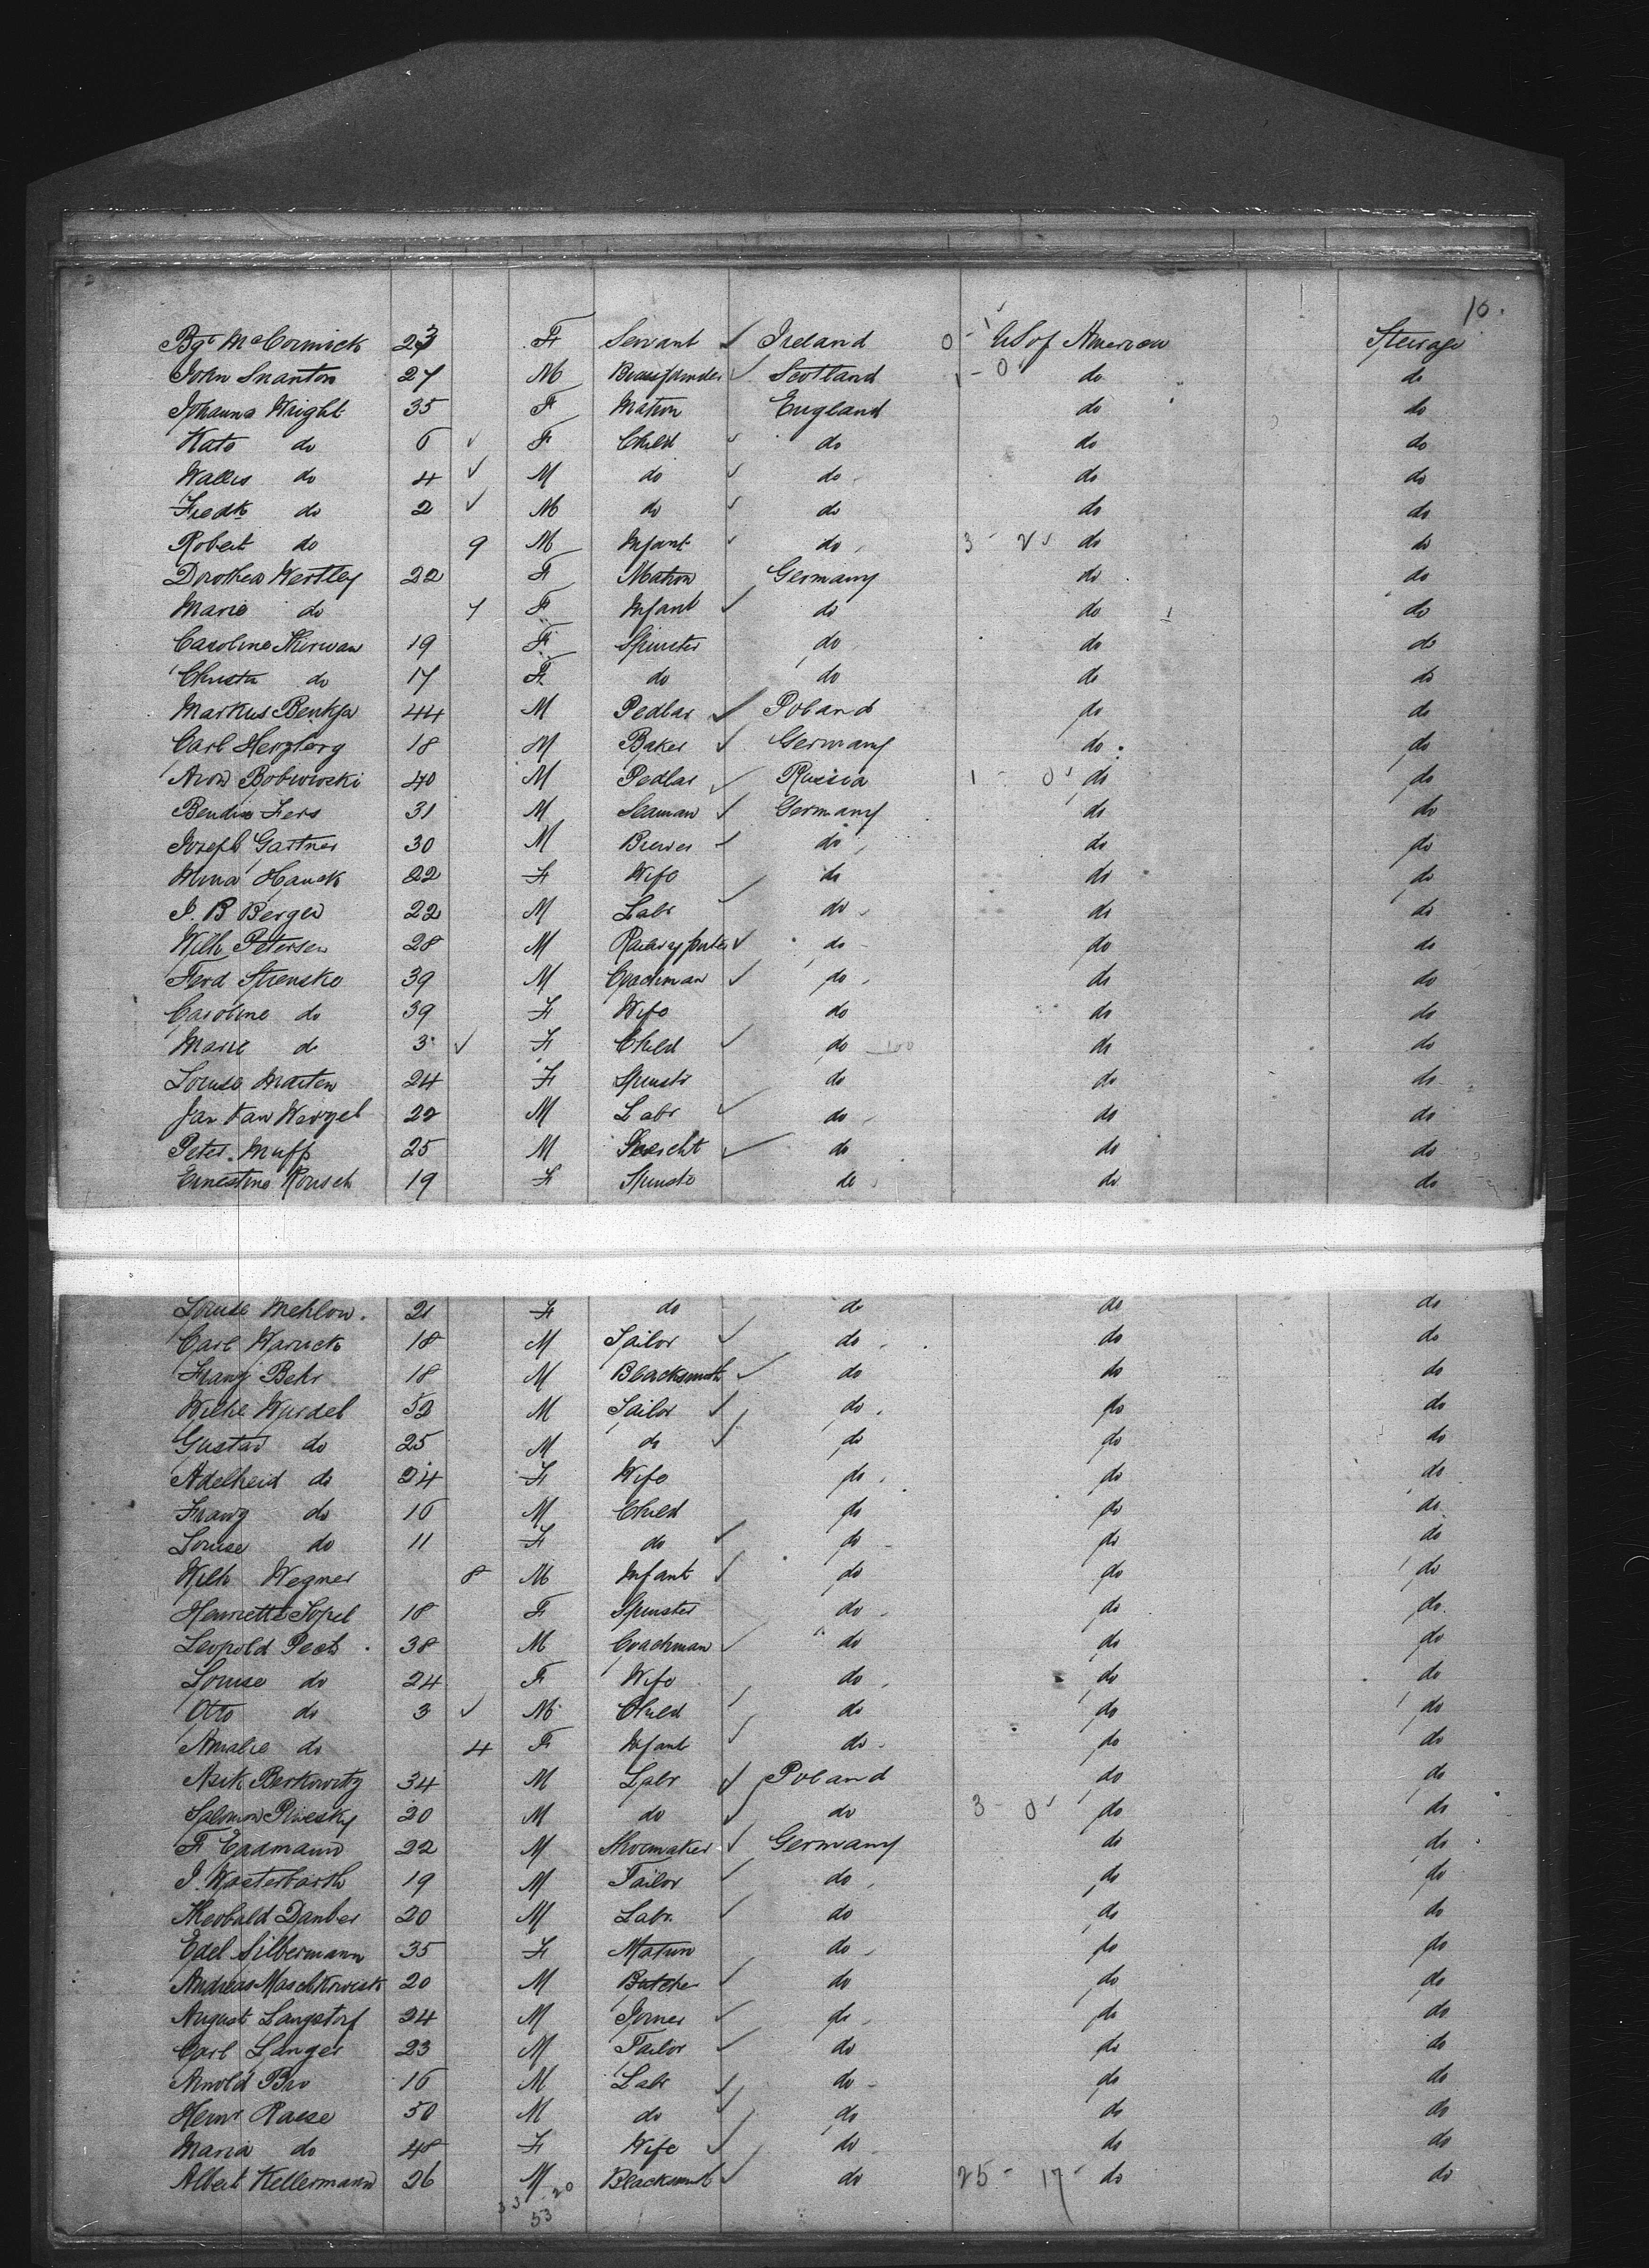 10.
Bgt McCormick 23 F Servant ✓ Ireland 0 - 1 US of America Steerage
John Swanton 27 M Brassfounder ✓ Scotland 1 - 0 do do
Johanna Wright 35 F Matron England do do
Kate do 6 ✓ F Child ✓ do do do
Wallis do 4 ✓ M do ✓ do do do
Fredk do 2 ✓ M do ✓ do do do
Robert do 9 M Infant ✓ do 3 - 2 do do
Dorothea Westley 22 F Matron Germany do do
Marie do 7 F Infant ✓ do do do
Caroline 19 F Spinster do do do
Christa do 17 F do do do do
Markus 44 M Pedlar ✓ Poland do do
Carl Herzberg 18 M Baker ✓ Germany do do
Aron Bobrowski 40 M Pedlar ✓ Russia 1 - 0 do do
Bendix Fers 31 M Seaman ✓ Germany do do
Joseph Gartner 30 M Brewer ✓ do do do
Minna Hauck 22 F Wife do do do
J. B Berger 22 M Labr ✓ do do do
Wilh Petersen 28 M Railway porter ✓ do do do
Ferd Strenske 39 M Coachman ✓ do do do
Caroline do 39 F Wife do do do
Marie do 3 ✓ F Child ✓ do do do
Louise Marten 24 F Spinstr do do do
Jan Van 22 M Labr ✓ do do do
Peter Muff 25 M Knecht ✓ do do do
Ernestine Rousch 19 F Spinstr do do do
Louise Mehlow. 21 F do do do do
Carl Warnck 18 M Sailor ✓ do do do
Franz Behr 18 M Blacksmith ✓ do do do
Wilhe Wurdel 52 M Sailor ✓ do do do
Gustav do 25 M do ✓ do do do
Adelheid do 24 F Wife do do do
Franz do 16 M Child do do do
Louise do 11 F do ✓ do do do
Wilh Wegner 8 M Infant ✓ do do do
Henriette Sopel 18 F Spinster do do do
Leopold Pech 38 M Coachman ✓ do do do
Louise do 24 F Wife do do do
Otto do 3 ✓ M Child ✓ do do do
Amalie do 4 F Infant ✓ do do do
Asik Berkowitz 34 M Labr ✓ Poland do do
Salomon 20 M do ✓ do 3 - 0 do do
F Erdmann 22 M Shoemaker ✓ Germany do do
J. Wasterbarth 19 M Tailor ✓ do do do
Theobald Dauber 20 M Labr. ✓ do do do
Edel Silbermann 35 F Matron do do do
Andreas 20 M Butcher ✓ do do do
August Langstorf 24 M Joiner ✓ do do do
Carl Langer 23 M Tailor ✓ do do do
Arnold 16 M Labr ✓ do do do
Hernr Raese 50 M do ✓ do do do
Maria do 48 F Wife ✓ do do do
Albert Kellermann 26 M Blacksmith ✓ do 25 - 17 - do do
33 20
53